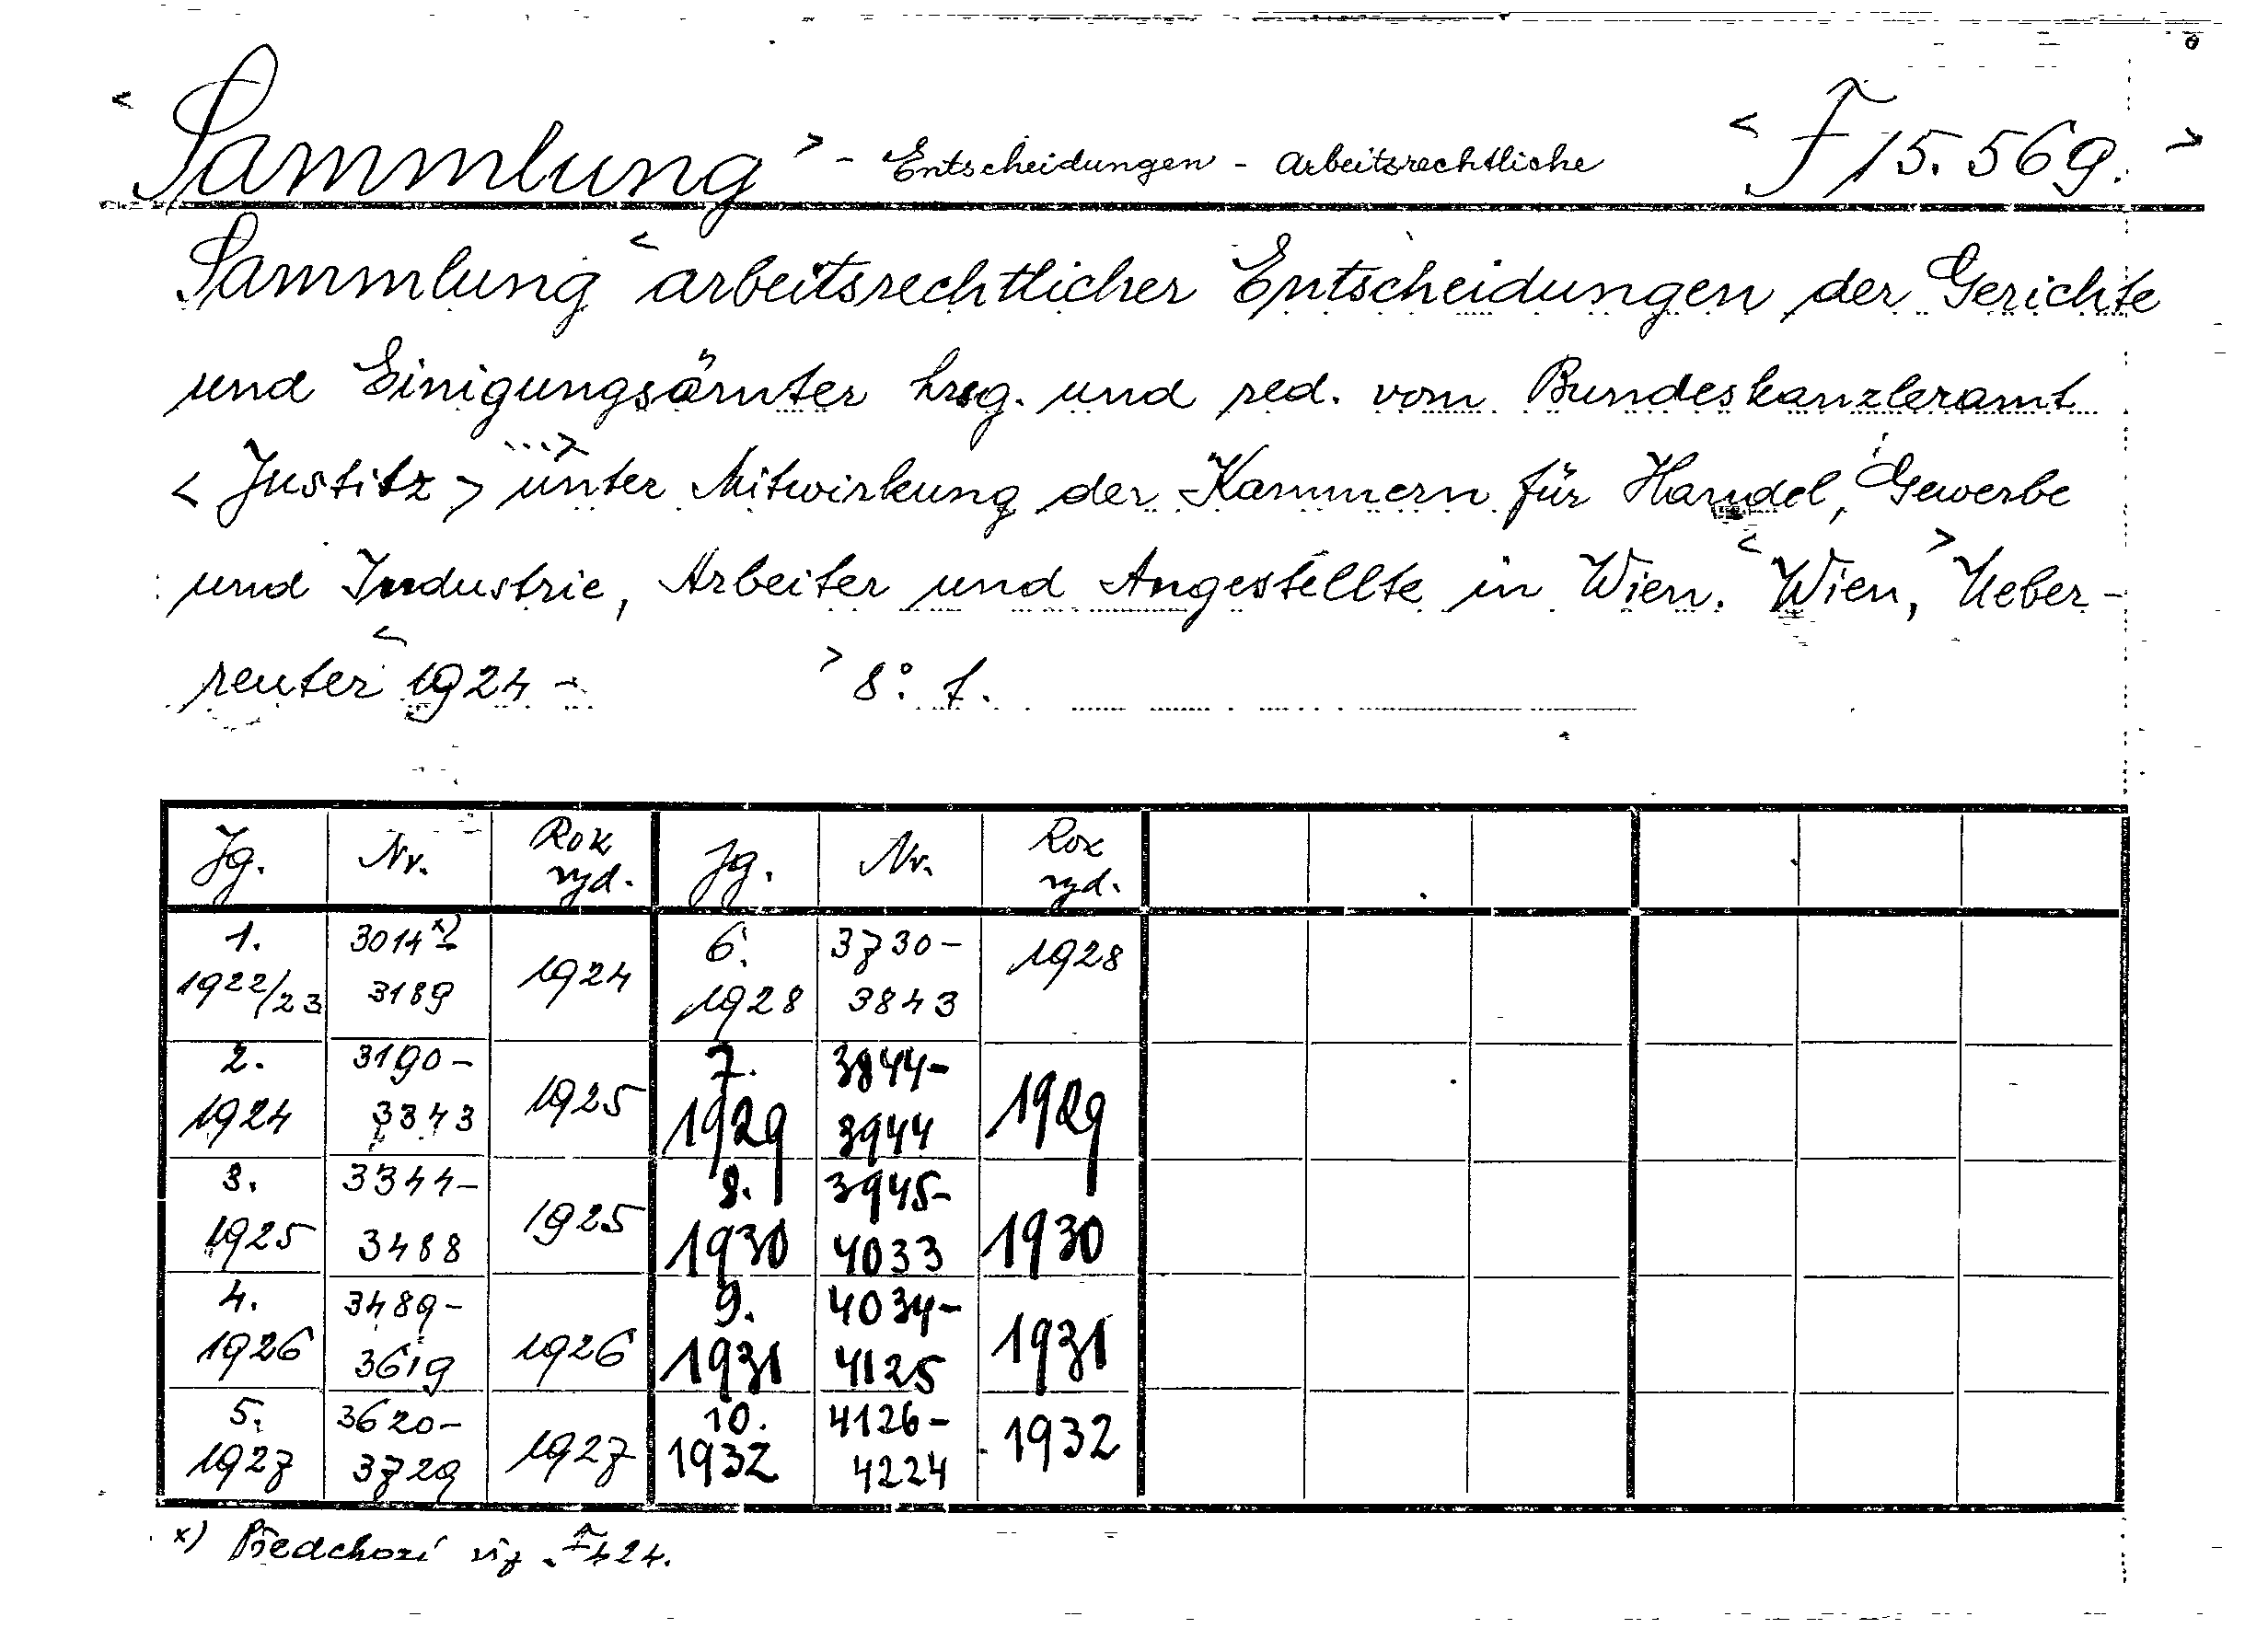 < Sammlung > - Entscheidungen - arbeitsrechtliche < F 15.569. >
Sammlung < arbeitsrechtlicher Entscheidungen der Gerichte
und Einigungsämter hrsg. und red. vom Bundeskanzleramt
< Justitz > ...> unter Mitwirkung der Kammern für Handel, Gewerbe
und Industrie, Arbeiter und Angestellte in Wien. < Wien, > Ueber-
reuter < 1924 - > 8°. f.
Jg. Nr. Rok vyd. Jg. Nr. Rok vyd.
1. 1922/23 3014 x) - 3189 1924 6. 1928 3730- 3843 1928
2. 1924 3190- 3343 1925 7. 1929 3844- 3944 1929
3. 1925 3344- 3488 1925 8. 1930 3945- 4033 1930
4. 1926 3489- 3619 1926 9. 1931 4034- 4125 1931
5. 1927 3620- 3729 1927 10. 1932 4126- 4224 1932
x) Předchozí viz F 424.